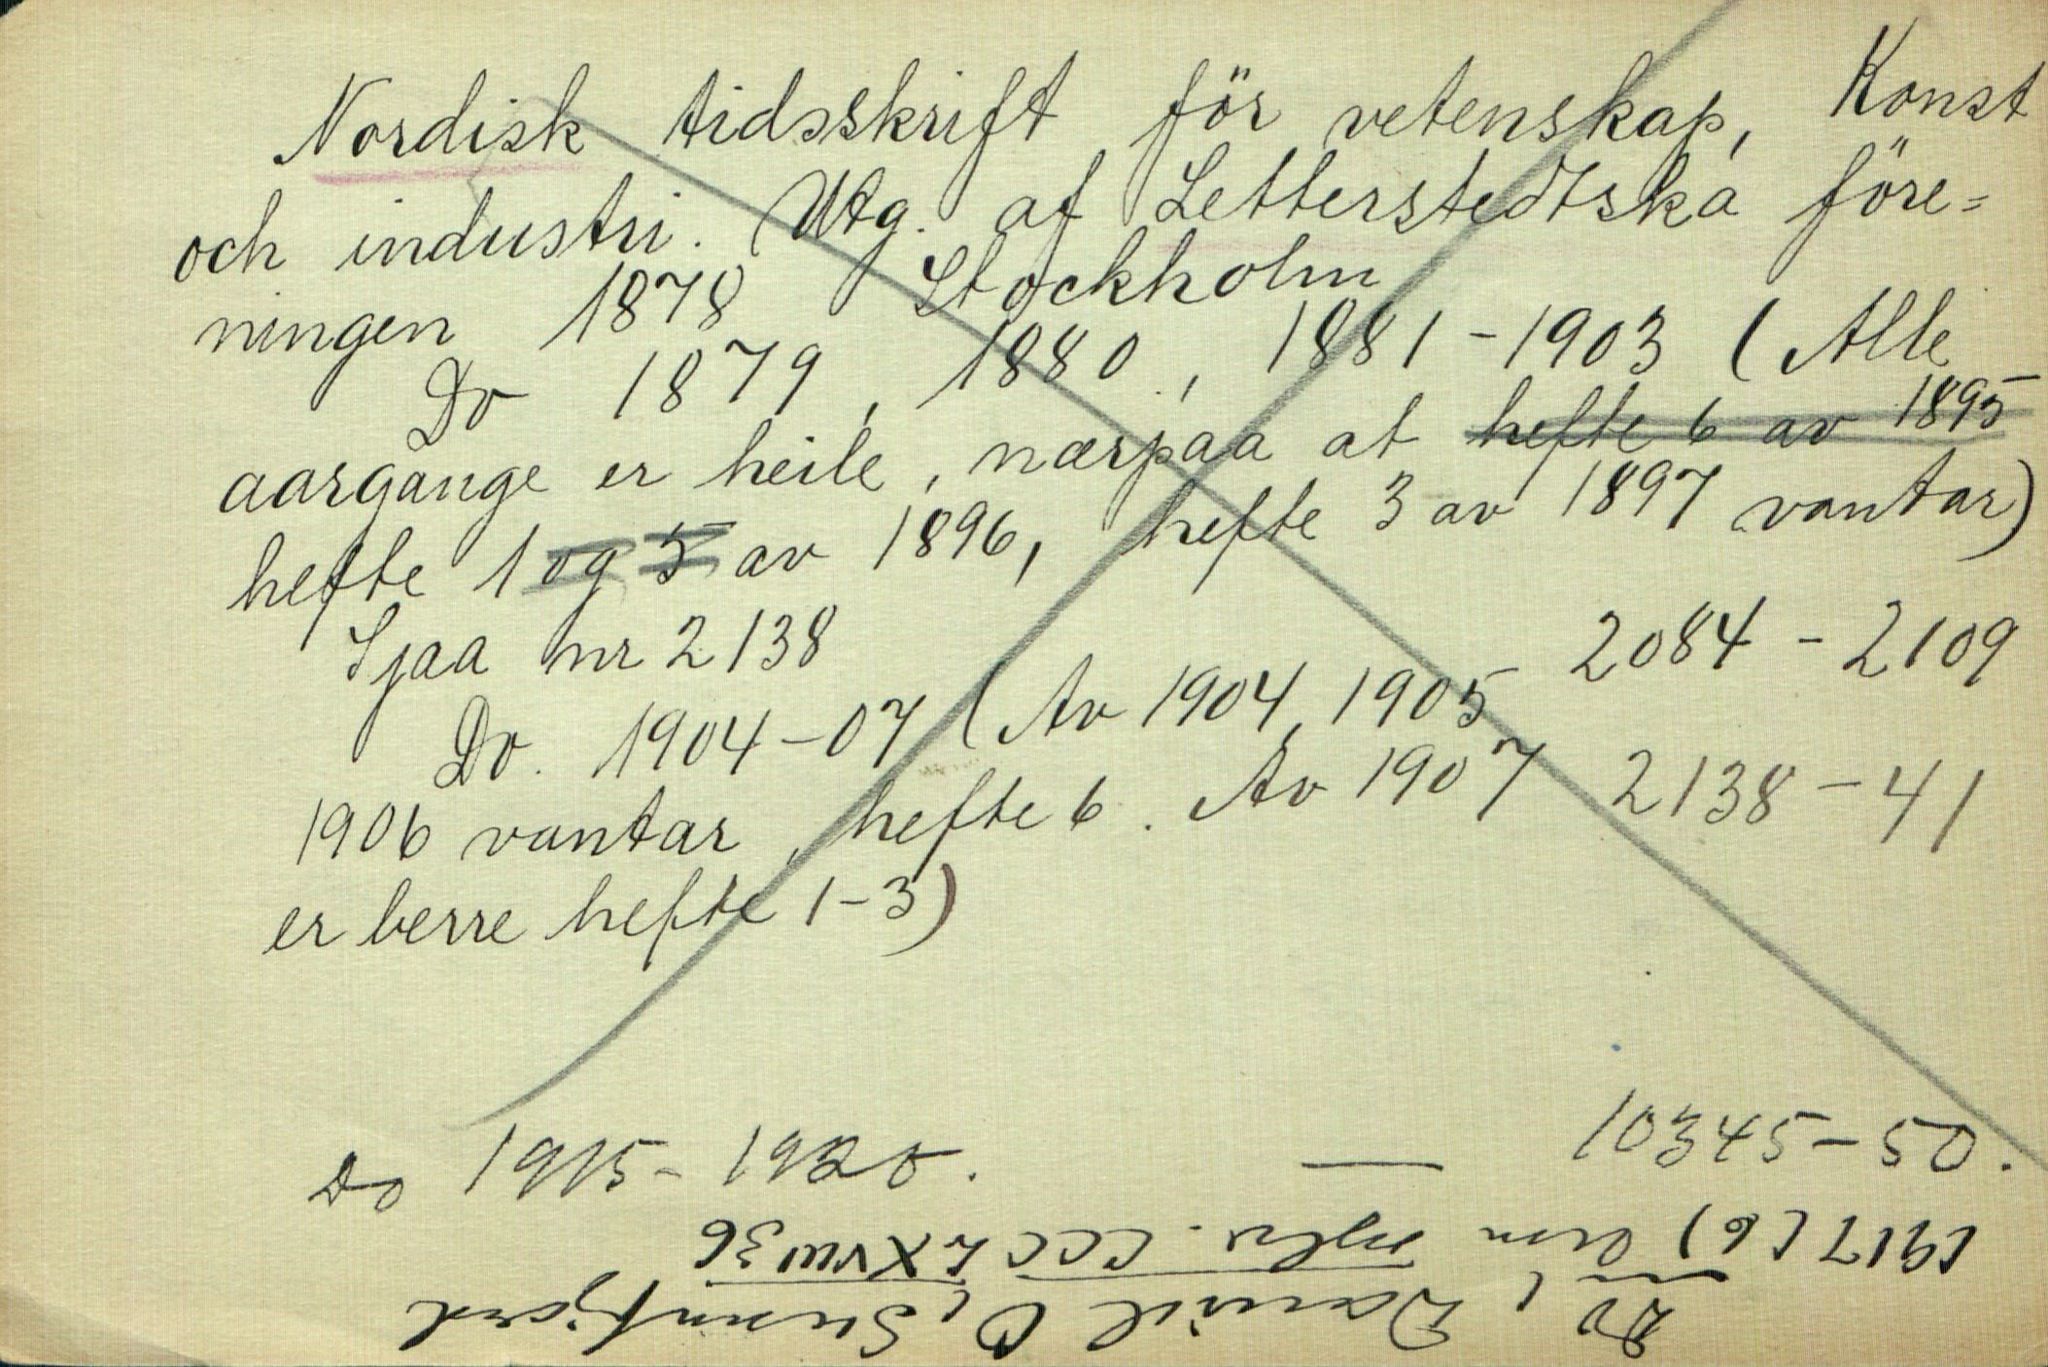 Nordisk tidsskrift för vetenskap, Konst
och industri. Utg. af Letterstedtska före=
ningen 1878 Stockholm
Do 1879, 1880, 1881-1903 (Alle
aargange er heile, nærpaa at hefte 6 av 1895
hefte 1 og 5 av 1896, hefte 3 av 1897 vantar)
Sjaa nr 2138 2084-2109
Do. 1904-07 (Av 1904, 1905
1906 vantar, hefte 6. Av 1907 2138-41
er berre hefte 1-3)
Do 1915-1920. — 10345-50.
Do, Daniel O, Sunnfjord
1917 (6)